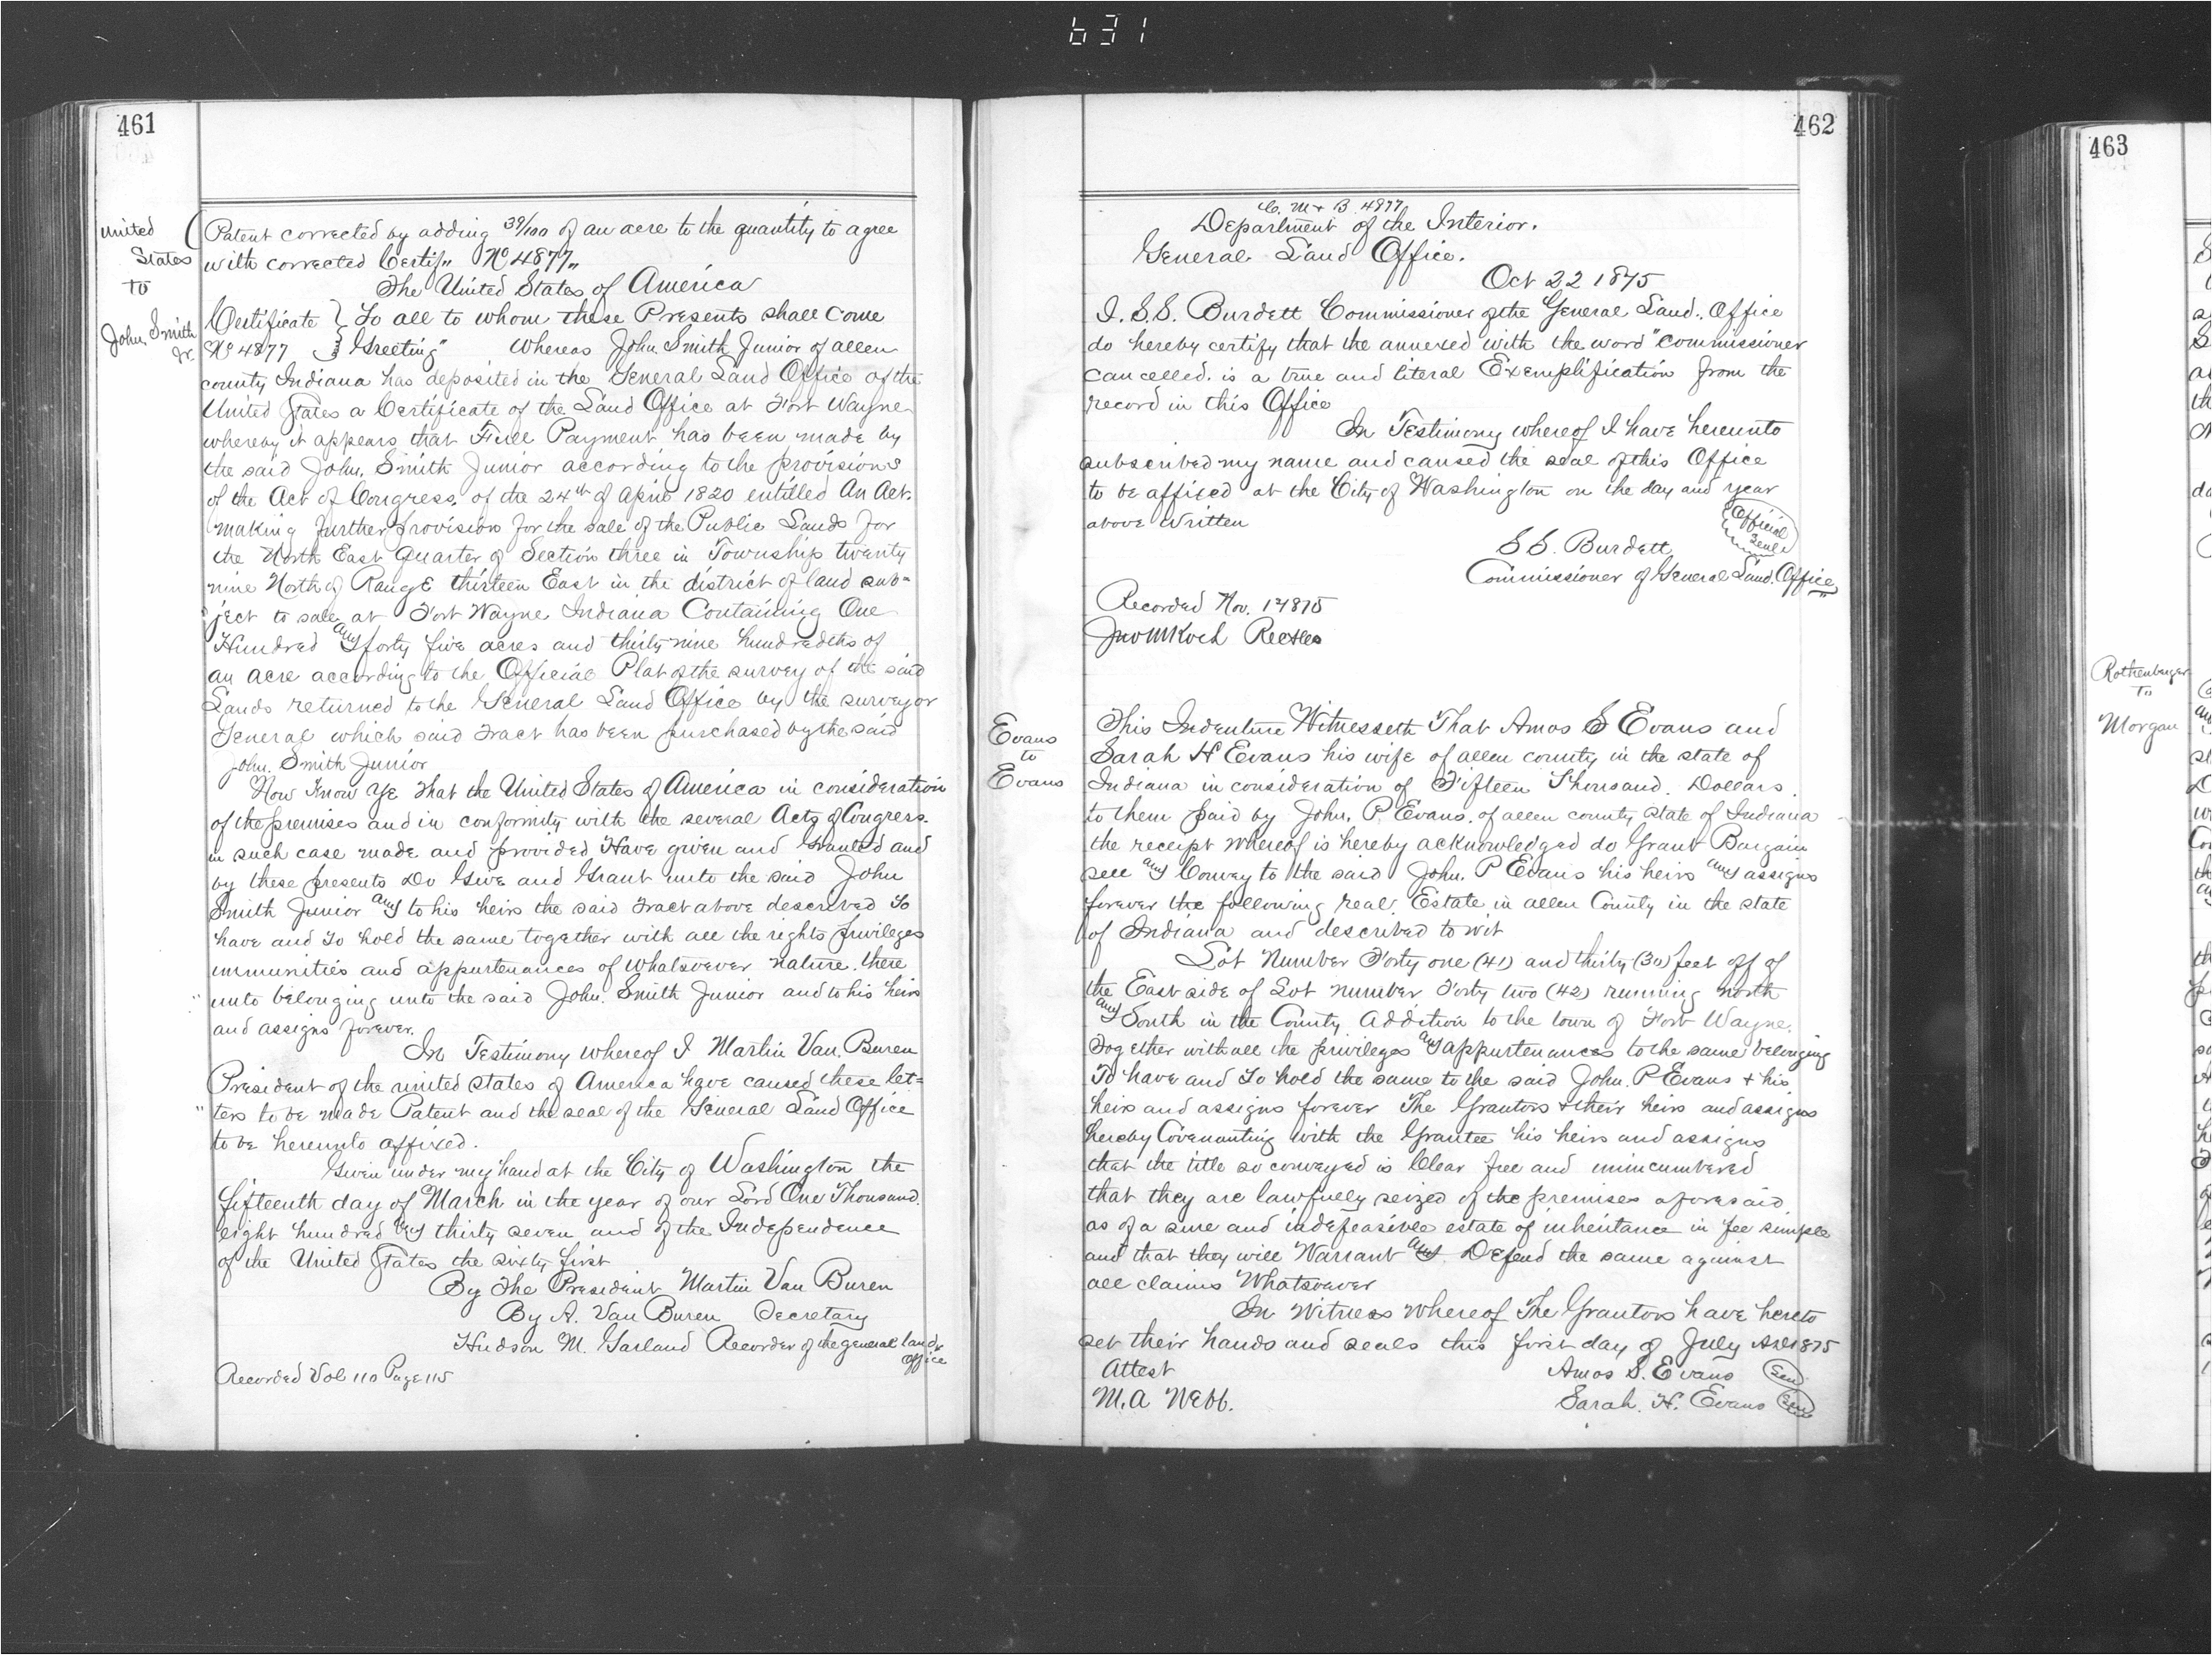 631
461
United
States
to
John Smith
Jr.
Patent corrected by adding 39/100 of an acre to the quantity to agree
with corrected Certif" No 4877"
The United States of America
Certificate } To all to whom these Presents shall come
No 4877 } Greeting" Whereas John Smith Junior of allen
county Indiana has deposited in the General Land Office of the
United States a Certificate of the Land Office at Fort Wayne
whereby it appears that Full Payment has been made by
the said John. Smith Junior according to the provisions
of the Act of Congress. of the 24th of April 1820 entitled An Act.
making further provision for the sale of the Public Lands for
the North East Quarter of Section three in Township twenty
nine North of Range thirteen East in the district of land sub=
ject to sale at Fort Wayne Indiana Containing One
Hundred and forty five acres and thirty nine hundredths of
an acre according to the Official Plat of the survey of the said
Lands returned to the General Land Office by the surveyor
General which said Tract has been purchased by the said
John. Smith Junior
Now Know Ye That the United States of America in consideration
of the premises and in conformity with the several Acts of Congress.
in such case made and provided Have given and Granted and
by these presents Do Give and Grant unto the said John
Smith Junior and to his heirs the said Tract above described To
have and To hold the same together with all the rights privileges
immunities and appurtenances of whatsoever nature. there
unto belonging unto the said John. Smith Junior and to his heirs
and assigns forever.
In Testimony whereof I Martin Van. Buren
President of the united states of America have caused these let=
ters to be made Patent and the seal of the General Land Office
to be hereunto affixed.
Given under my hand at the City of Washington the
fifteenth day of March in the year of our Lord One Thousand.
eight hundred and thirty seven and of the Independence
of the United States the sixty first
By The President Martin Van Buren
By A. Van Buren Secretary
Hudson M. Garland Recorder of the general land
office
Recorded Vol 110 Page 115
462
C. M & B. 4877
Department of the Interior.
General Land Office.
Oct 22 1875
I. S.S. Burdett Commissioner of the General Land. Office
do hereby certify that the annexed with the word "Commissioner
cancelled. is a true and literal Exemplification from the
record in this Office
In Testimony whereof I have hereunto
subscribed my name and caused the seal of this Office
to be affixed at the City of Washington on the day and year
above written
Official
Seal
S S. Burdett
Commissioner of General Land. Office
Recorded Nov. 1 1875
Jno M Koch
Evans
to
Evans
This Indenture Witnesseth That Amos S Evans and
Sarah H Evans his wife of allen county in the state of
Indiana in consideration of Fifteen Thousand. Dollars.
to them paid by John. P. Evans. of allen county state of Indiana
the receipt whereof is hereby acknowledged do Grant Bargain
sell and Convey to the said John. P Evans his heirs and assigns
forever the following real. Estate in allen County in the state
of Indiana and described to wit
Lot Number Forty one (41) and thirty (30) feet off of
the East side of Lot number Forty two (42) running north
and South in the County Addition to the town of Fort Wayne.
Together with all the privileges and appurtenances to the same belonging
To have and To hold the same to the said John. P Evans & his
heirs and assigns forever The Grantors & their heirs and assigns
hereby Covenanting with the Grantee his heirs and assigns
that the title so conveyed is Clear free and unincumbered
that they are lawfully seized of the premises aforesaid.
as of a sure and indefeasible estate of inheritance in fee simple
and that they will Warrant and Defend the same against
all claims Whatsoever
In Witness whereof The Grantors have hereto
set their hands and seals this first day of July AD 1875
Attest
Amos S. Evans Seal
M. A Webb.
Sarah. H. Evans Seal
463
Rothenberger
To
Morgan